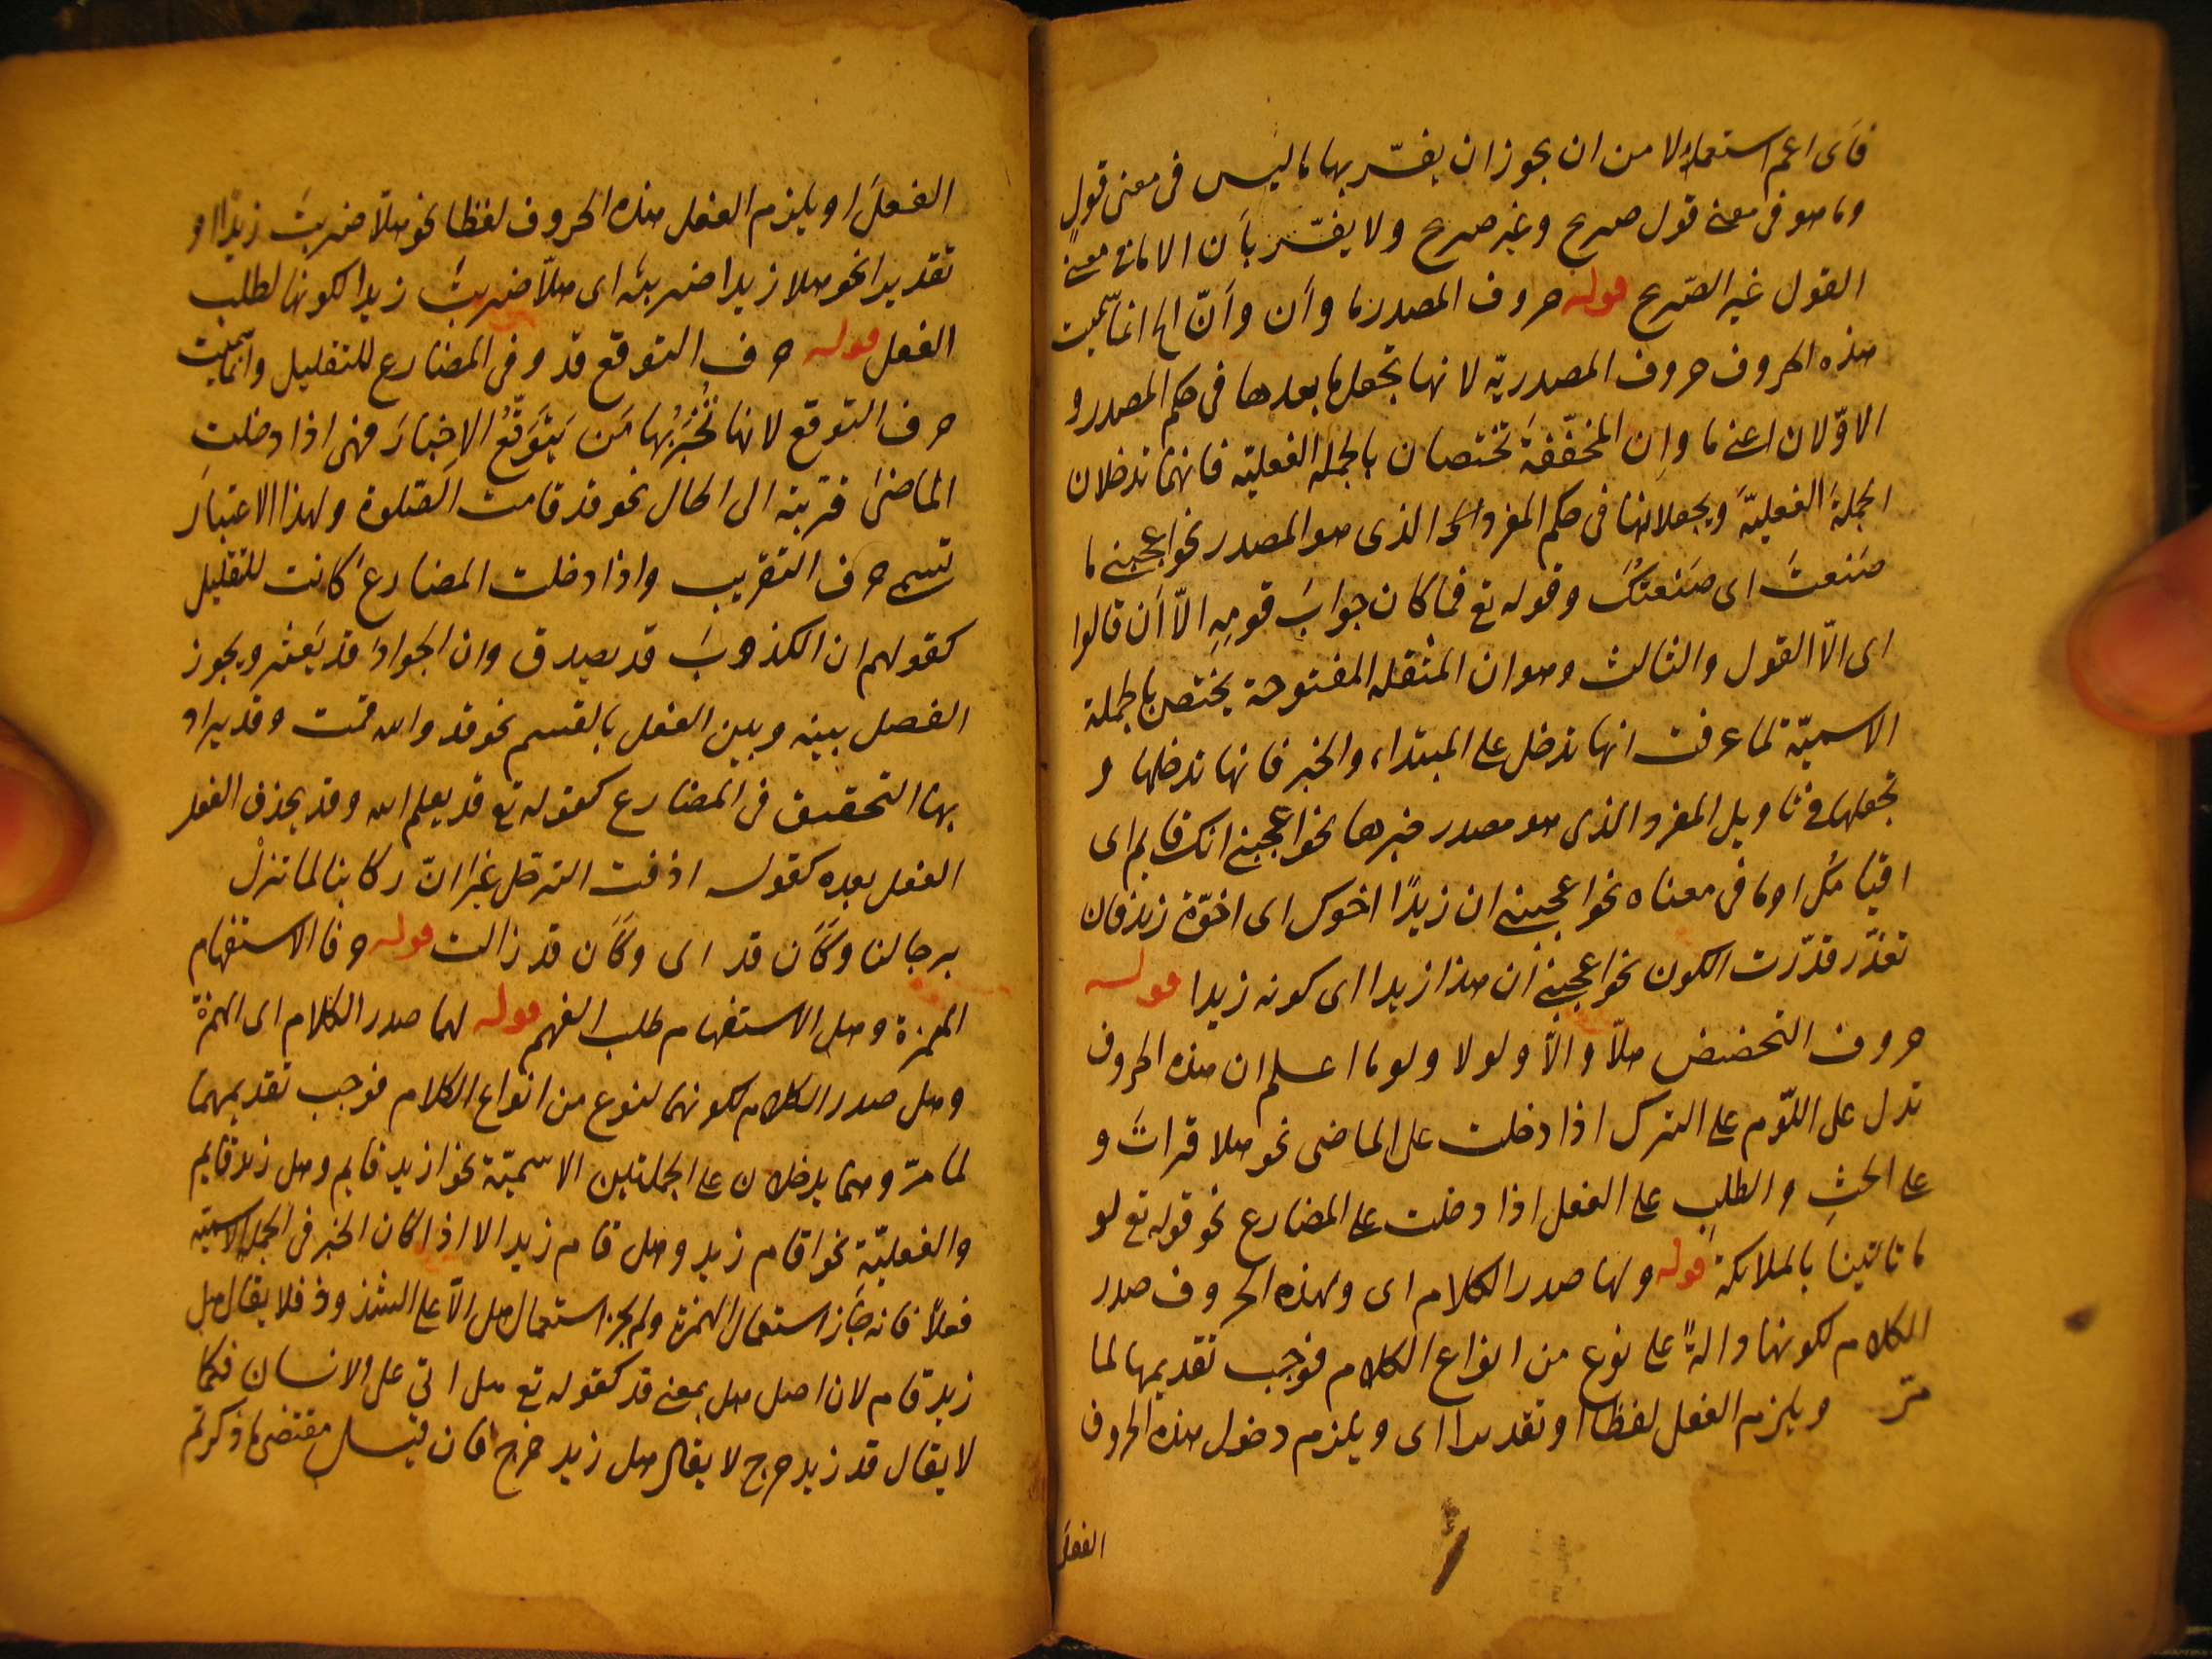 فأى اعم استعمالا من ان يجوز ان يفسّر بها ما ليس فى معنى قول
وما هو فى معنى قول صريح وغير صريح ولا يفسّر بأن الا ما فى معنى
القول غير الصّريح قوله حروف المصدر ما وأن وأنّ الخ انما سمّيت
هذه الحروف حروف المصدريّة لانها تجعل ما بعدها فى حكم المصدر و
الاوّلان اعنى ما وإن المخفّفة تختصان بالجملة الفعليّة فانهما تدخلان
الجملة الفعليّة ويجعلانها فى حكم المفرد الذى هو المصدر نحو اعجبنى ما
صَنعتَ اى صَنعتُكَ وقوله تع فما كان جوابَ قومِهِ الّا أن قالوا
اى الّا القول والثالث وهو ان المثقلة المفتوحة يختص بالجملة
الاسميّة لما عرفت انها تدخل على المبتداء والخبر فانها تدخلها و
تجعلها فى تاويل المفرد الذى هو مصدر خبرها نحو اعجبنى انك قايم اى
اقيامُك او ما فى معناه نحو اعجبنى ان زيدًا اخوك اى اخوّة زيد فان
تعذّر قدّرت الكون نحو اعجبنى ان هذا زيدا اى كونه زيدا قوله
حروف التحضيض هلّا والّا ولولا ولوما اعلم ان هذه الحروف
تدل على اللّوم على الترك اذا دخلت على الماضى نحو هلا قرأتَ و
على الحثِ والطلبِ على الفعل اذا دخلت على المضارع نحو قوله تع لو
ما تاتينا بالملائكة قوله ولها صدر الكلام اى ولهذه الحروف صدر
الكلام لكونها دالةً على نوع من انواع الكلام فوجب تقديمها لما
مرّ ويلزم الفعل لفظا او تقديرا اى ويلزم دخول هذه الحروف
الفعلَ
الفعلَ او يلزم الفعل هذه الحروف لفظا نحو هلّا ضربتَ زيدًا او
تقديرا نحو هلا زيدا ضربته اى هلّا ضربتَ زيدا لكونها لطلب
الفعل قوله حرف التوقع قد وفى المضارع للتقليل وانما سمّيت
حرف التوقع لانها تُخْبَرُ بها مَن يَتَوَقَّعُ الاِخبارَ فهى اذا دخلت
الماضىَ قرّبته الى الحال نحو قد قامت الصّلوة ولهذا الاعتبار
تسمى حرف التقريب واذا دخلت المضارعَ كانت للتقليل
كقولهم ان الكذوبَ قد يصدق وان الجوادَ قد يَعثر ويجوز
الفصل بينه وبين الفعل بالقسم نحو قد والله قمت وقد يراد
بها التحقيق فى المضارع كقوله تع قد يعلم الله وقد يحذف الفعل
الفعل بعده كقوله ازفت الترحل غير انّ ركابنا لما تزلْ
برحالنا وكأن قد اى وكأن قد زالت قوله حرفا الاستفهام
الهمزة وهل الاستفهام طلب الفهم قوله لهما صدر الكلام اى الهمزة
وهل صدر الكلام لكونهما لنوع من انواع الكلام فوجب تقديمهما
لما مرّ وهما يدخلان على الجملتين الاسميّة نحو ازيد قايم وهل زيد قايم
والفعليّة نحو اقام زيد وهل قام زيد الا اذا كان الخبر فى الجملة الاسميّة
فعلاً فانه جاز استعمال الهمزة ولم يجز استعمال هل الّا على الشذوذ فلا يقال هل
زيد قام لان اصل هل بمعنى قد كقوله تع هل اتى على الانسان فكما
لا يقال قد زيد خرج لا يقال هل زيد خرج فان قيل مقتضى ما ذكرتم